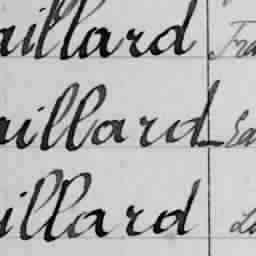 aillard Fra
aillard Ea
illard La